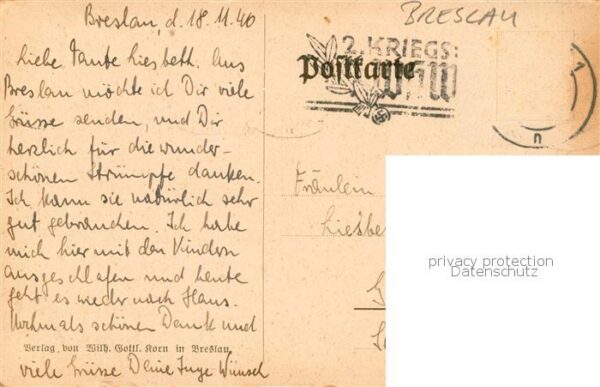 Breslau, d. 18.11.40
Liebe Tante Liesbeth. Aus
Breslau möchte ich Dir viele
Grüsse senden, und Dir
herzlich für die wunder-
schönen Strümpfe danken.
Ich kann sie natürlich sehr
gut gebrauchen. Ich habe
mich hier mit den Kindern
ausgeschlafen und heute
geht es wieder nach Haus.
Nochmals schönen Dank und
Verlag von Wilh. Gottl. Korn in Breslau
viele Grüsse Deine Inge Wünsch
BRESLAU
2. KRIEGS:
Postkarte
WHW
Fräulein
Liesbe
privacy protection
Datenschutz